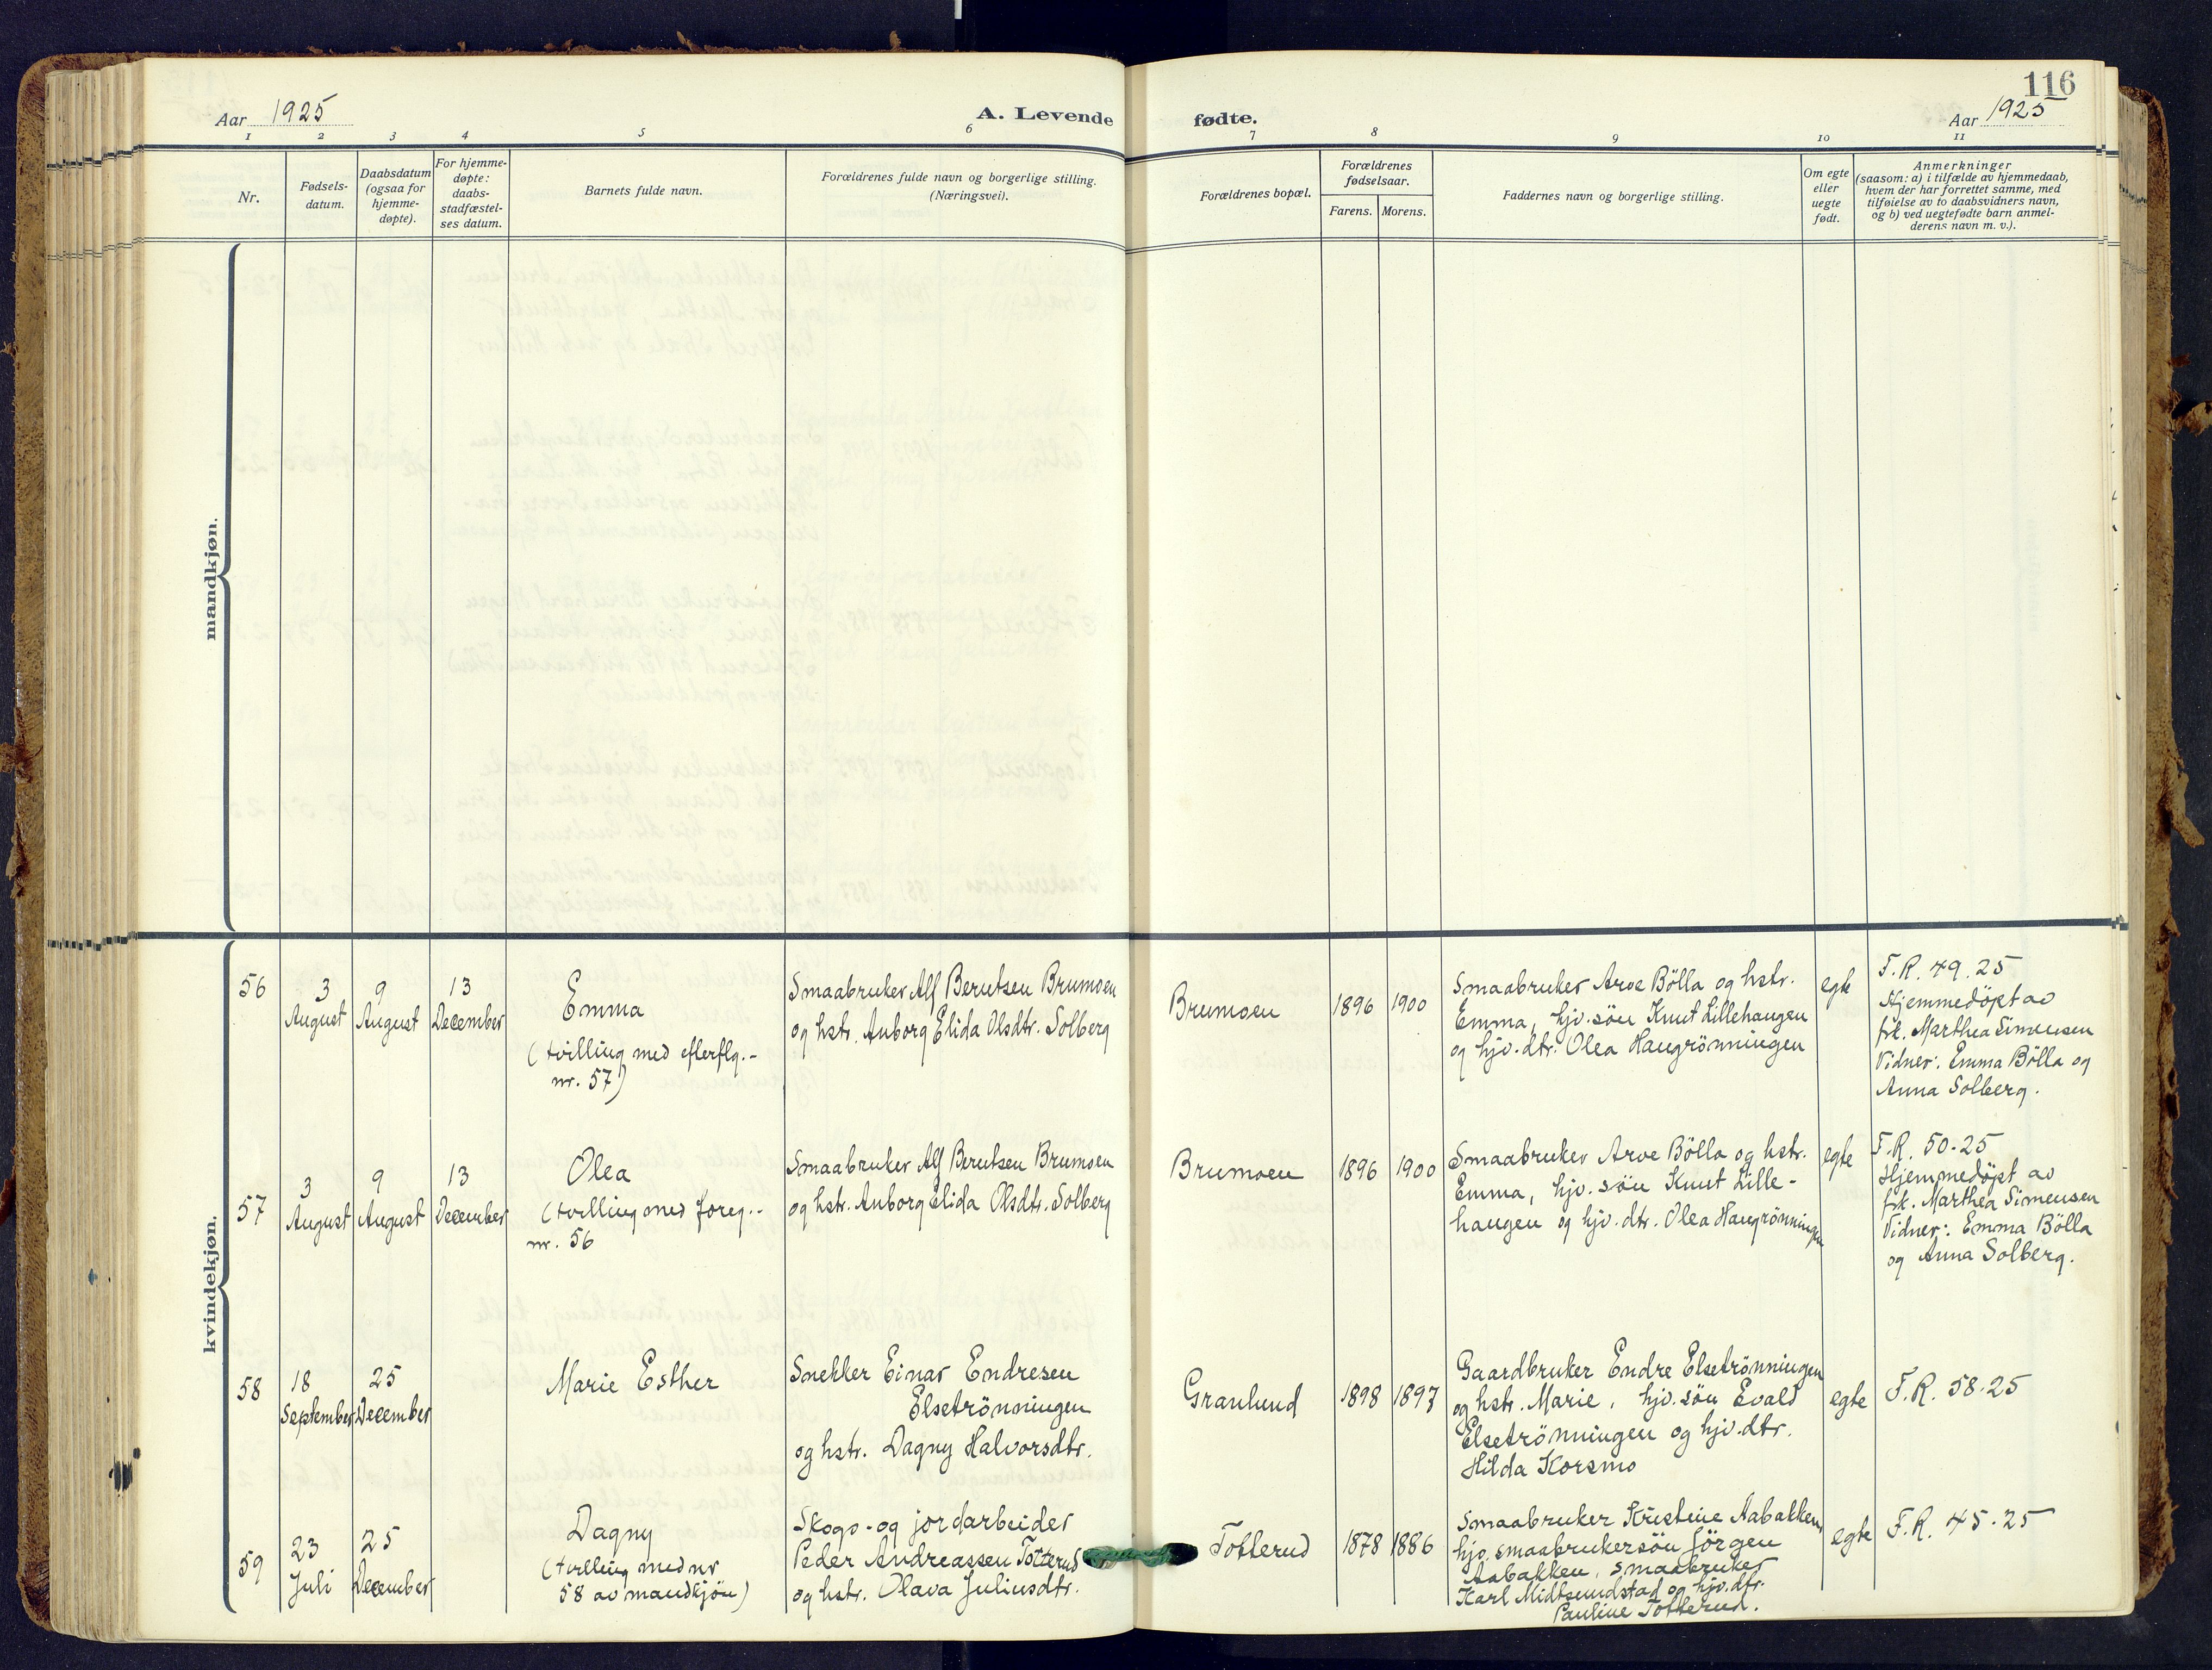 116
Aar 1925
A. Levende fødte.
Aar 1925
1 2 3 4 5 6 7 8 9 10 11
Nr.
Fødsels-
datum.
Daabsdatum
(ogsaa for
hjemme-
døpte).
For hjemme-
døpte:
daabs-
stadfæstel-
ses datum.
Barnets fulde navn.
Forældrenes fulde navn og borgerlige stilling.
(Næringsvei).
Forældrenes bopæl.
Forældrenes
fødselsaar.
Farens. Morens.
Faddernes navn og borgerlige stilling.
Om egte
eller
uegte
født.
Anmerkninger
(saasom: a) i tilfælde av hjemmedaab,
hvem der har forrettet samme, med
tilføielse av to daabsvidners navn,
og b) ved uegtefødte barn anmel-
derens navn m. v.).
mandkjøn.
kvindekjøn.
56
3
August
9
August
13
December
Emma
(tvilling med efterflg.-
nr. 57)
Smaabruker Alf Berntsen Brumoen
og hstr. Anborg Elida Olsdtr. Solberg
Brumoen
1896
1900
Smaabruker Arve Bölla og hstr.
Emma, hjv. sön Knut Lillehaugen
og hjv. dtr. Olea Haugrönningen
egte
F.R. 49.25
Hjemmedöpt av
frk. Marthea Simensen
Vidner: Emma Bölla og
Anna Solberg.
57
3
August
9
August
13
December
Olea
(tvilling med foreg.-
nr. 56
Smaabruker Alf Berntsen Brumoen
og hstr. Anborg Elida Olsdtr. Solberg
Brumoen
1896
1900
Smaabruker Arve Bölla og hstr.
Emma, hjv. sön Knut Lille-
haugen og hjv. dtr. Olea Haugrönningen
egte
F.R. 50-25
Hjemmedöpt av
frk. Marthea Simensen
Vidner: Emma Bölla
og Anna Solberg.
58
18
September
25
December
Marie Esther
Snekker Einar Endresen
Elsetrönningen
og hstr. Dagny Halvorsdtr.
Granlund
1898
1897
Gaardbruker Endre Elsetrönningen
og hstr. Marie, hjv. sön Evald
Elsetrönningen og hjv. dtr.
Hilda Korsmo
egte
F.R. 58-25
59
23
Juli
25
December
Dagny
(tvilling med nr
58 av mandkjön)
Skogs- og jordarbeider
Peder Andreassen Totterud
og hstr. Olava Juliusdtr.
Totterud
1878
1886
Smaabruker Kristine Aabakken,
hjv. smaabrukersön Jörgen
Aabakken, smaabruker
Karl Midtsundstad og hjv. dtr.
Pauline Totterud.
egte
F.R. 45-25